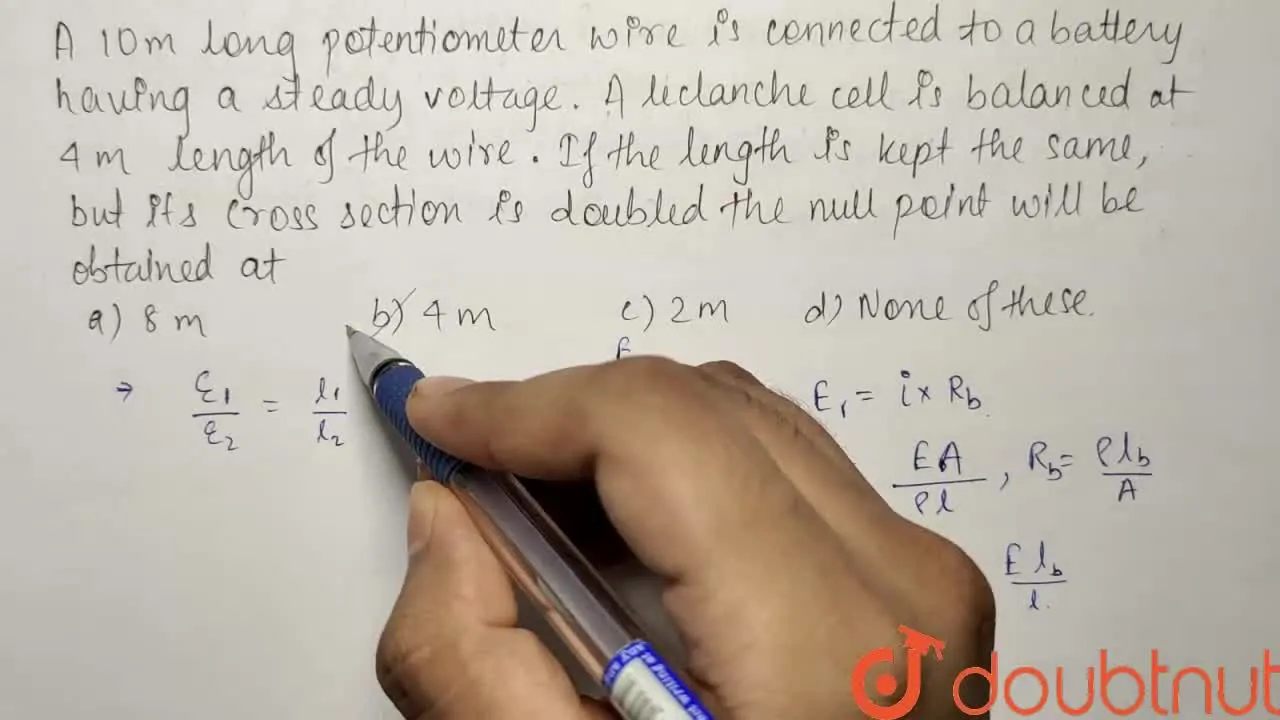 A 10m long potentiometer wire is connected to a battery
having a steady voltage. A leclanche cell is balanced at
4m length of the wire. If the length is kept the same,
but its cross section is doubled the null point will be
obtained at
a) 8 m b) 4 m c) 2 m d) None of these.
→ ε₁/ε₂ = l₁/l₂
E₁ = i × R_b
EA/ρl , R_b = ρl_b/A
E l_b/l.
doubtnut